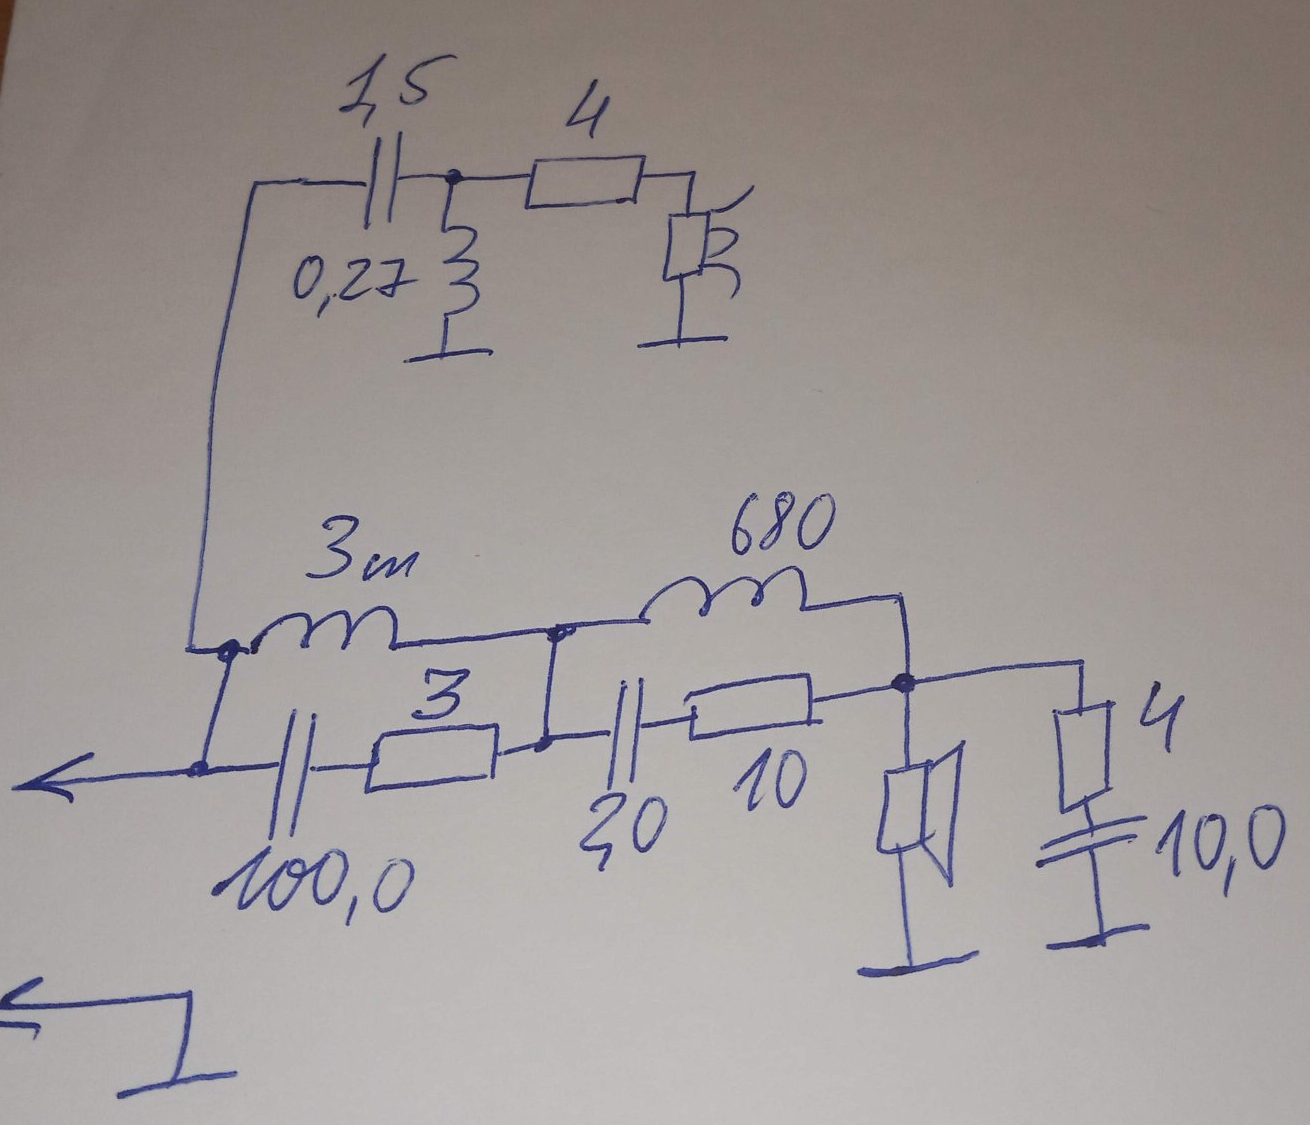 1,5
4
0,27
680
3m
3
4
10
2,0
10,0
100,0